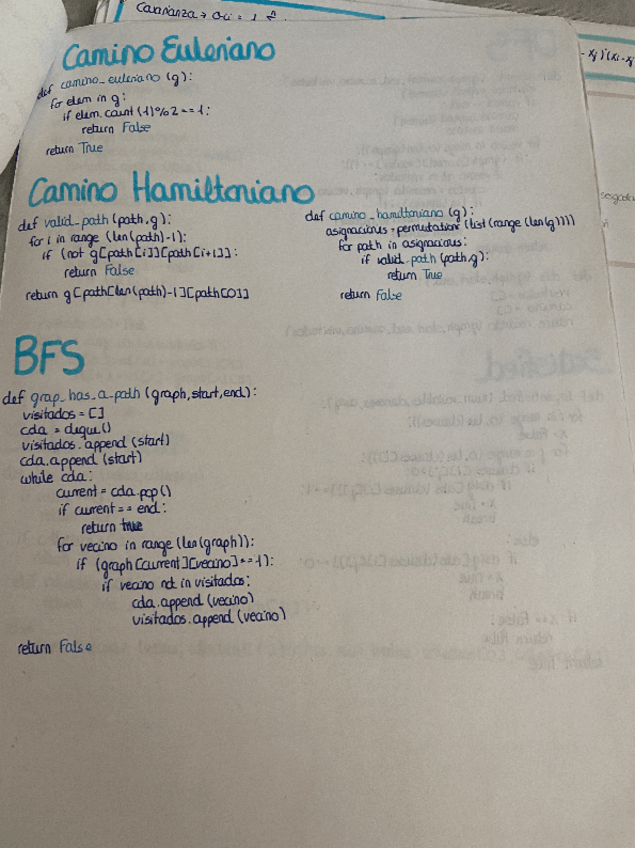 Camino Euleriano
def camino_euleriano (g):
for elem in g:
if elem.count(1)%2==1:
return False
return True
Camino Hamiltoniano
def valid_path (path,g):
for i in range (len(path)-1):
if (not g[path[i]][path[i+1]]:
return False
return g[path[len(path)-1]][path[0]]
def camino_hamiltoniano (g):
asignaciones=permutations (list(range(len(g))))
for path in asignaciones:
if valid_path (path,g):
return True
return False
BFS
def grap_has_a_path (graph,start,end):
visitados = []
cola = deque()
visitados.append (start)
cola.append (start)
while cola:
current = cola.pop()
if current == end:
return true
for vecino in range (len(graph)):
if (graph[current][vecino]==1):
if vecino not in visitados:
cola.append (vecino)
visitados.append (vecino)
return False